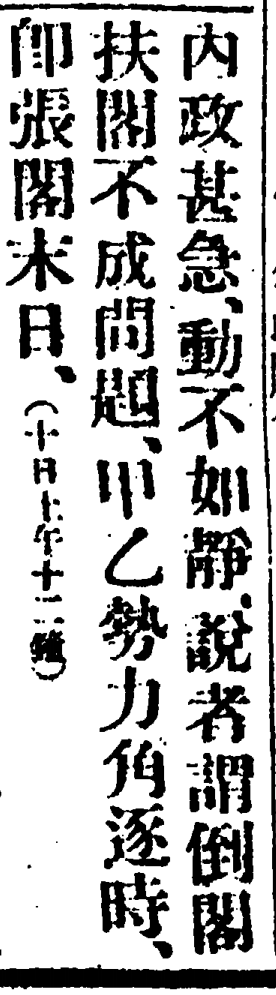 內政甚急、動不如靜、說者謂倒閣
扶閣不成問題、甲乙勢力角逐時、
卽張閣末日、（十日上午十二鐘）